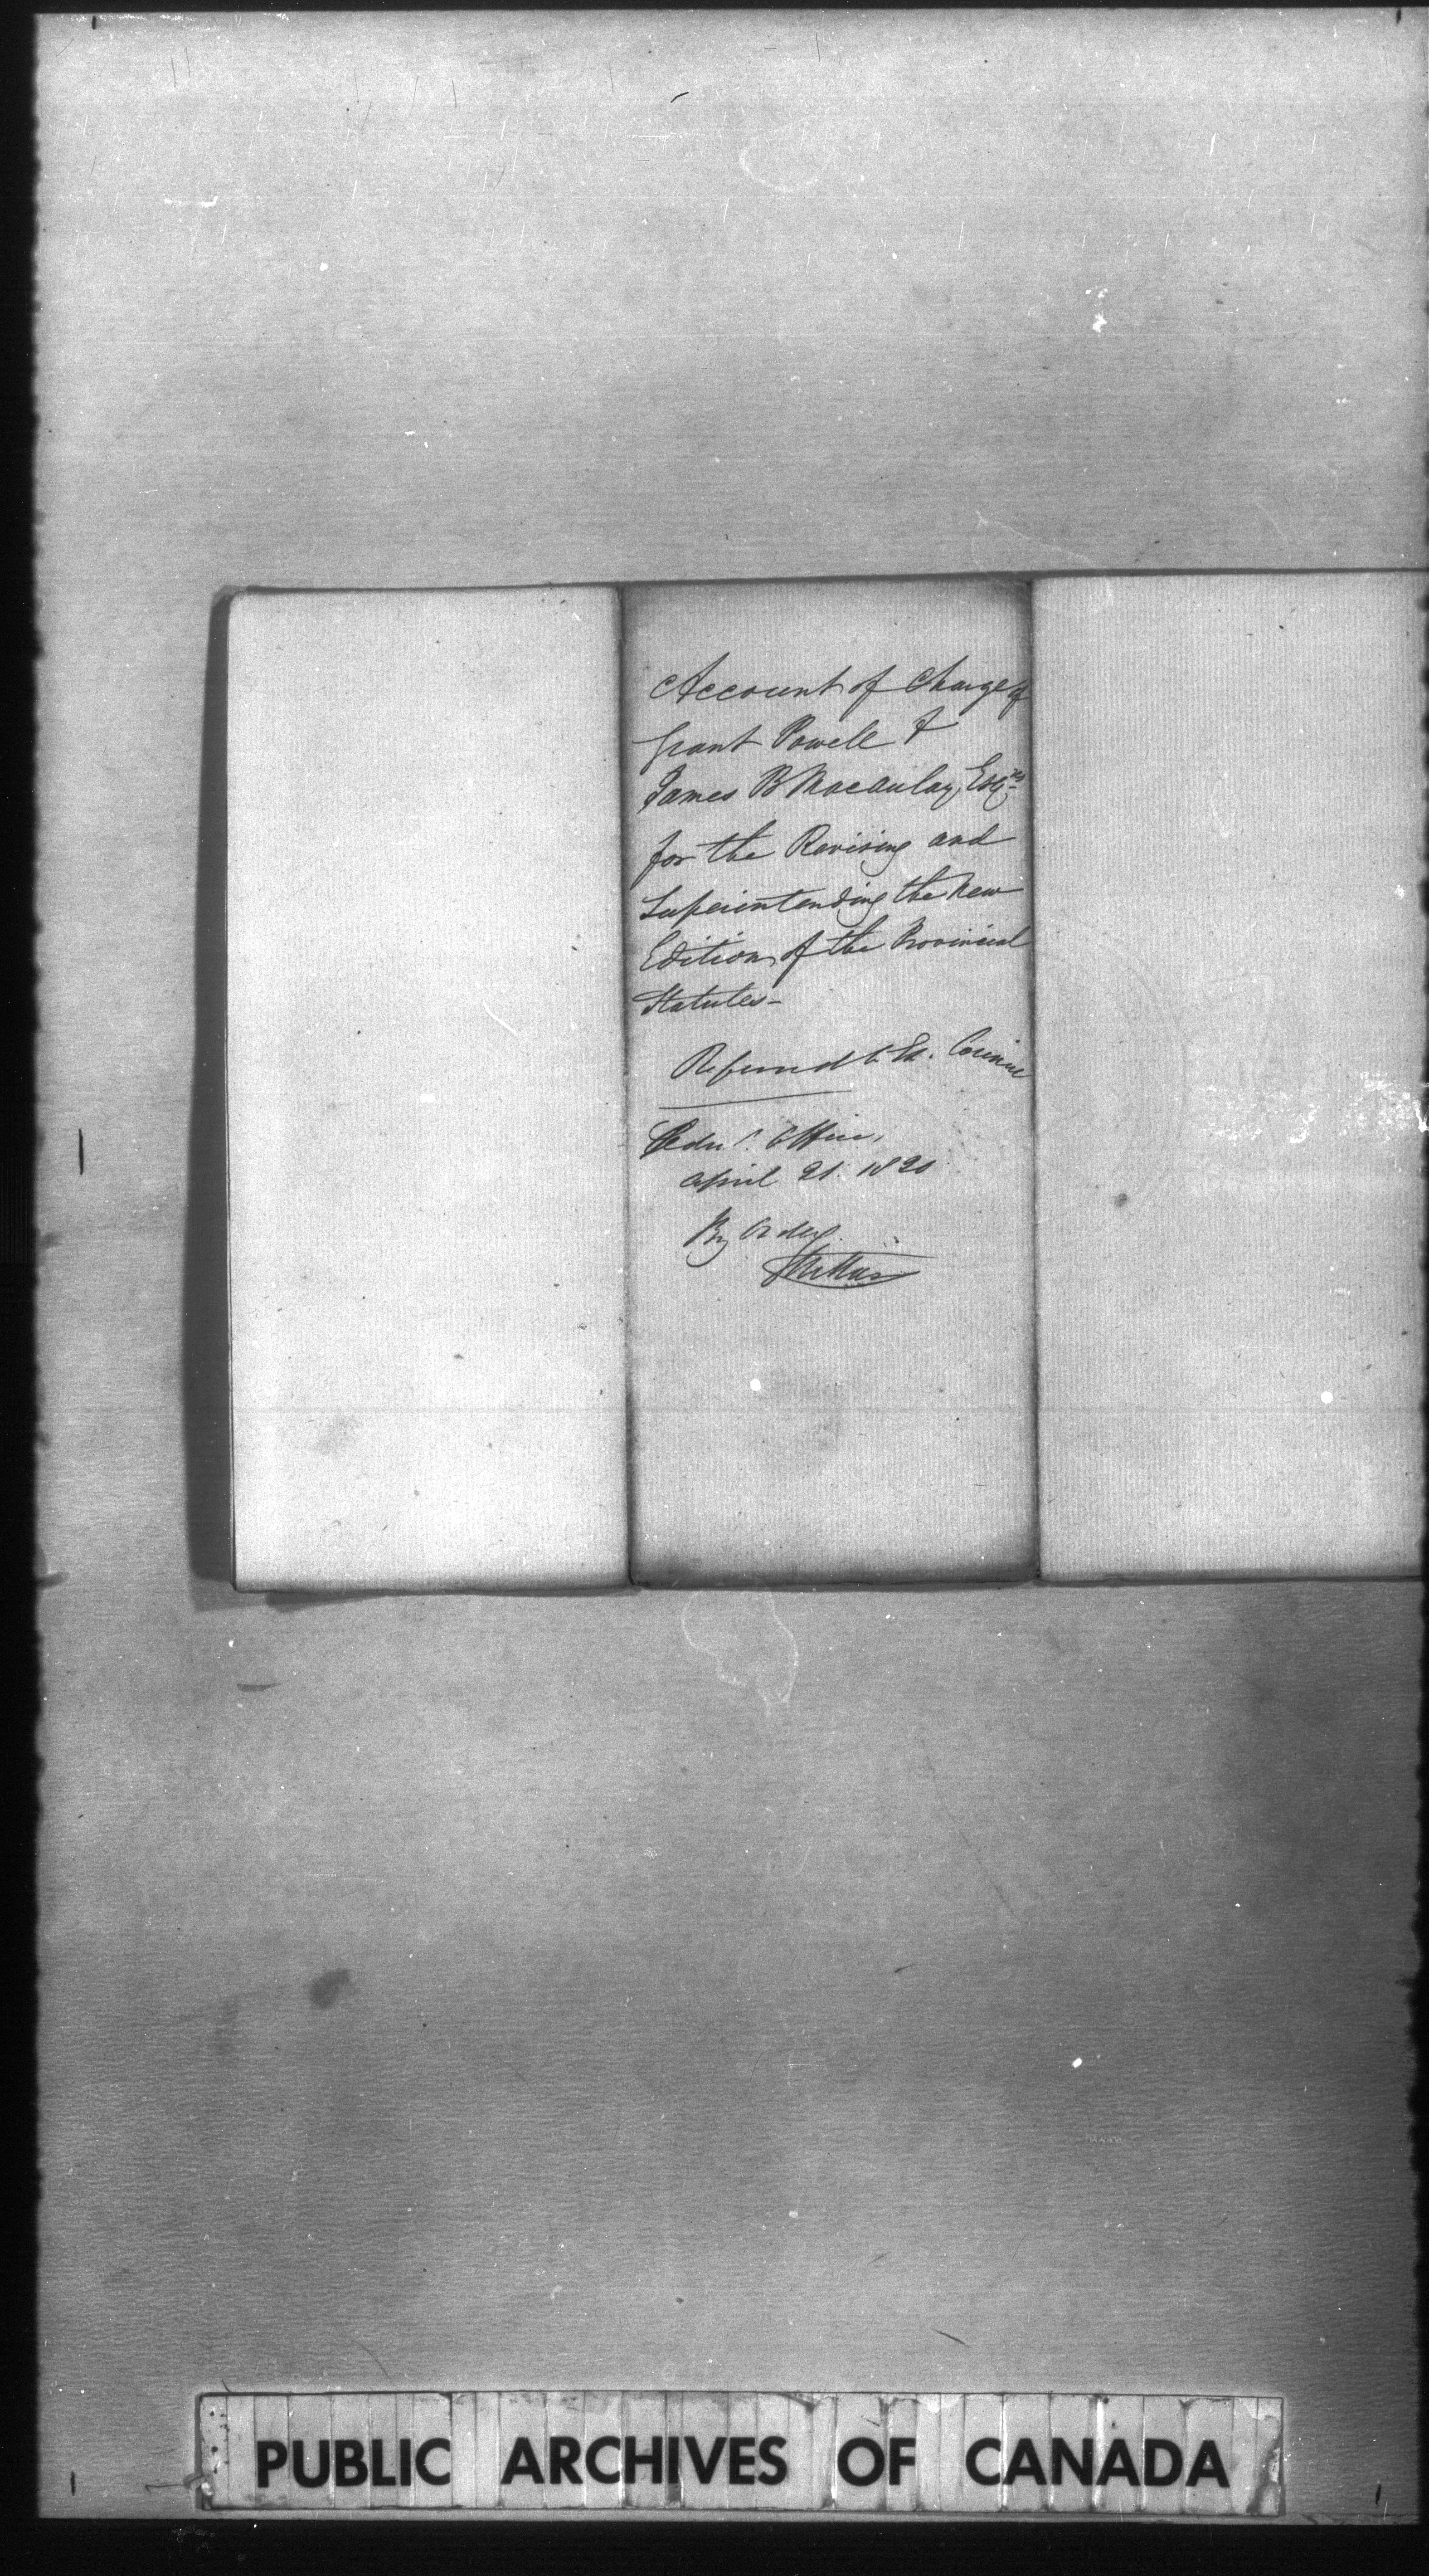 Account of Charge of
Grant Powell &
James B Macaulay, Esqres
for the Revising and
Superintending the New
Edition of the Provincial
Statutes-
Referred to Ex. Council
Office,
April 21. 1820
By Order
PUBLIC ARCHIVES OF CANADA